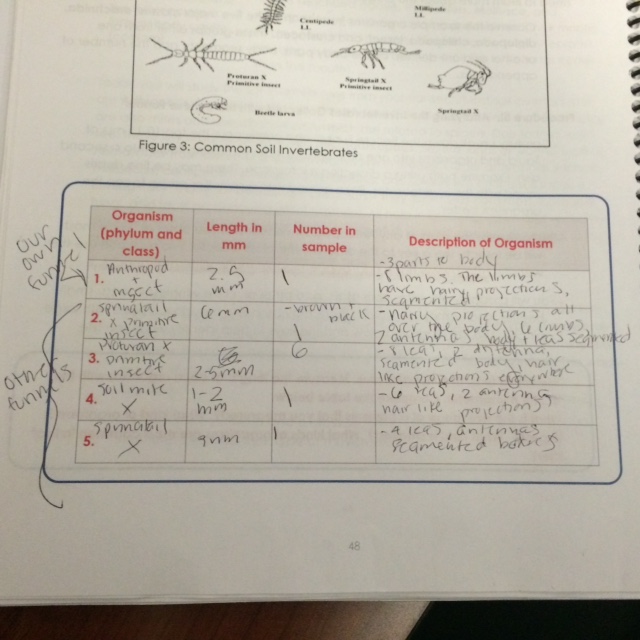 Centipede
I.I.
Millipede
I.I.
Proturan X
Primitive insect
Springtail X
Primitive insect
Beetle larva
Springtail X
Figure 3: Common Soil Invertebrates
our
own
funnel
others
funnels
Organism
(phylum and
class)
Length in
mm
Number in
sample
Description of Organism
1. Arthropod
+
insect
2.5
mm
1
-3 parts to body
limbs. The limbs
have many projections,
segmented
2. springtail
X primitive
insect
6mm
-brown +
black
1
-many projections all
over the body, 6 limbs
2 antennas, body + legs segmented
3. Proturan X
primitive
insect
2-5mm
6
legs, 2 antenna,
segmented body, hair
like projections everywhere
4. soil mite
X
1-2
mm
1
-6 legs, 2 antenna
hair like projections
5. springtail
X
mm
1
legs, antennas
segmented bodies
48